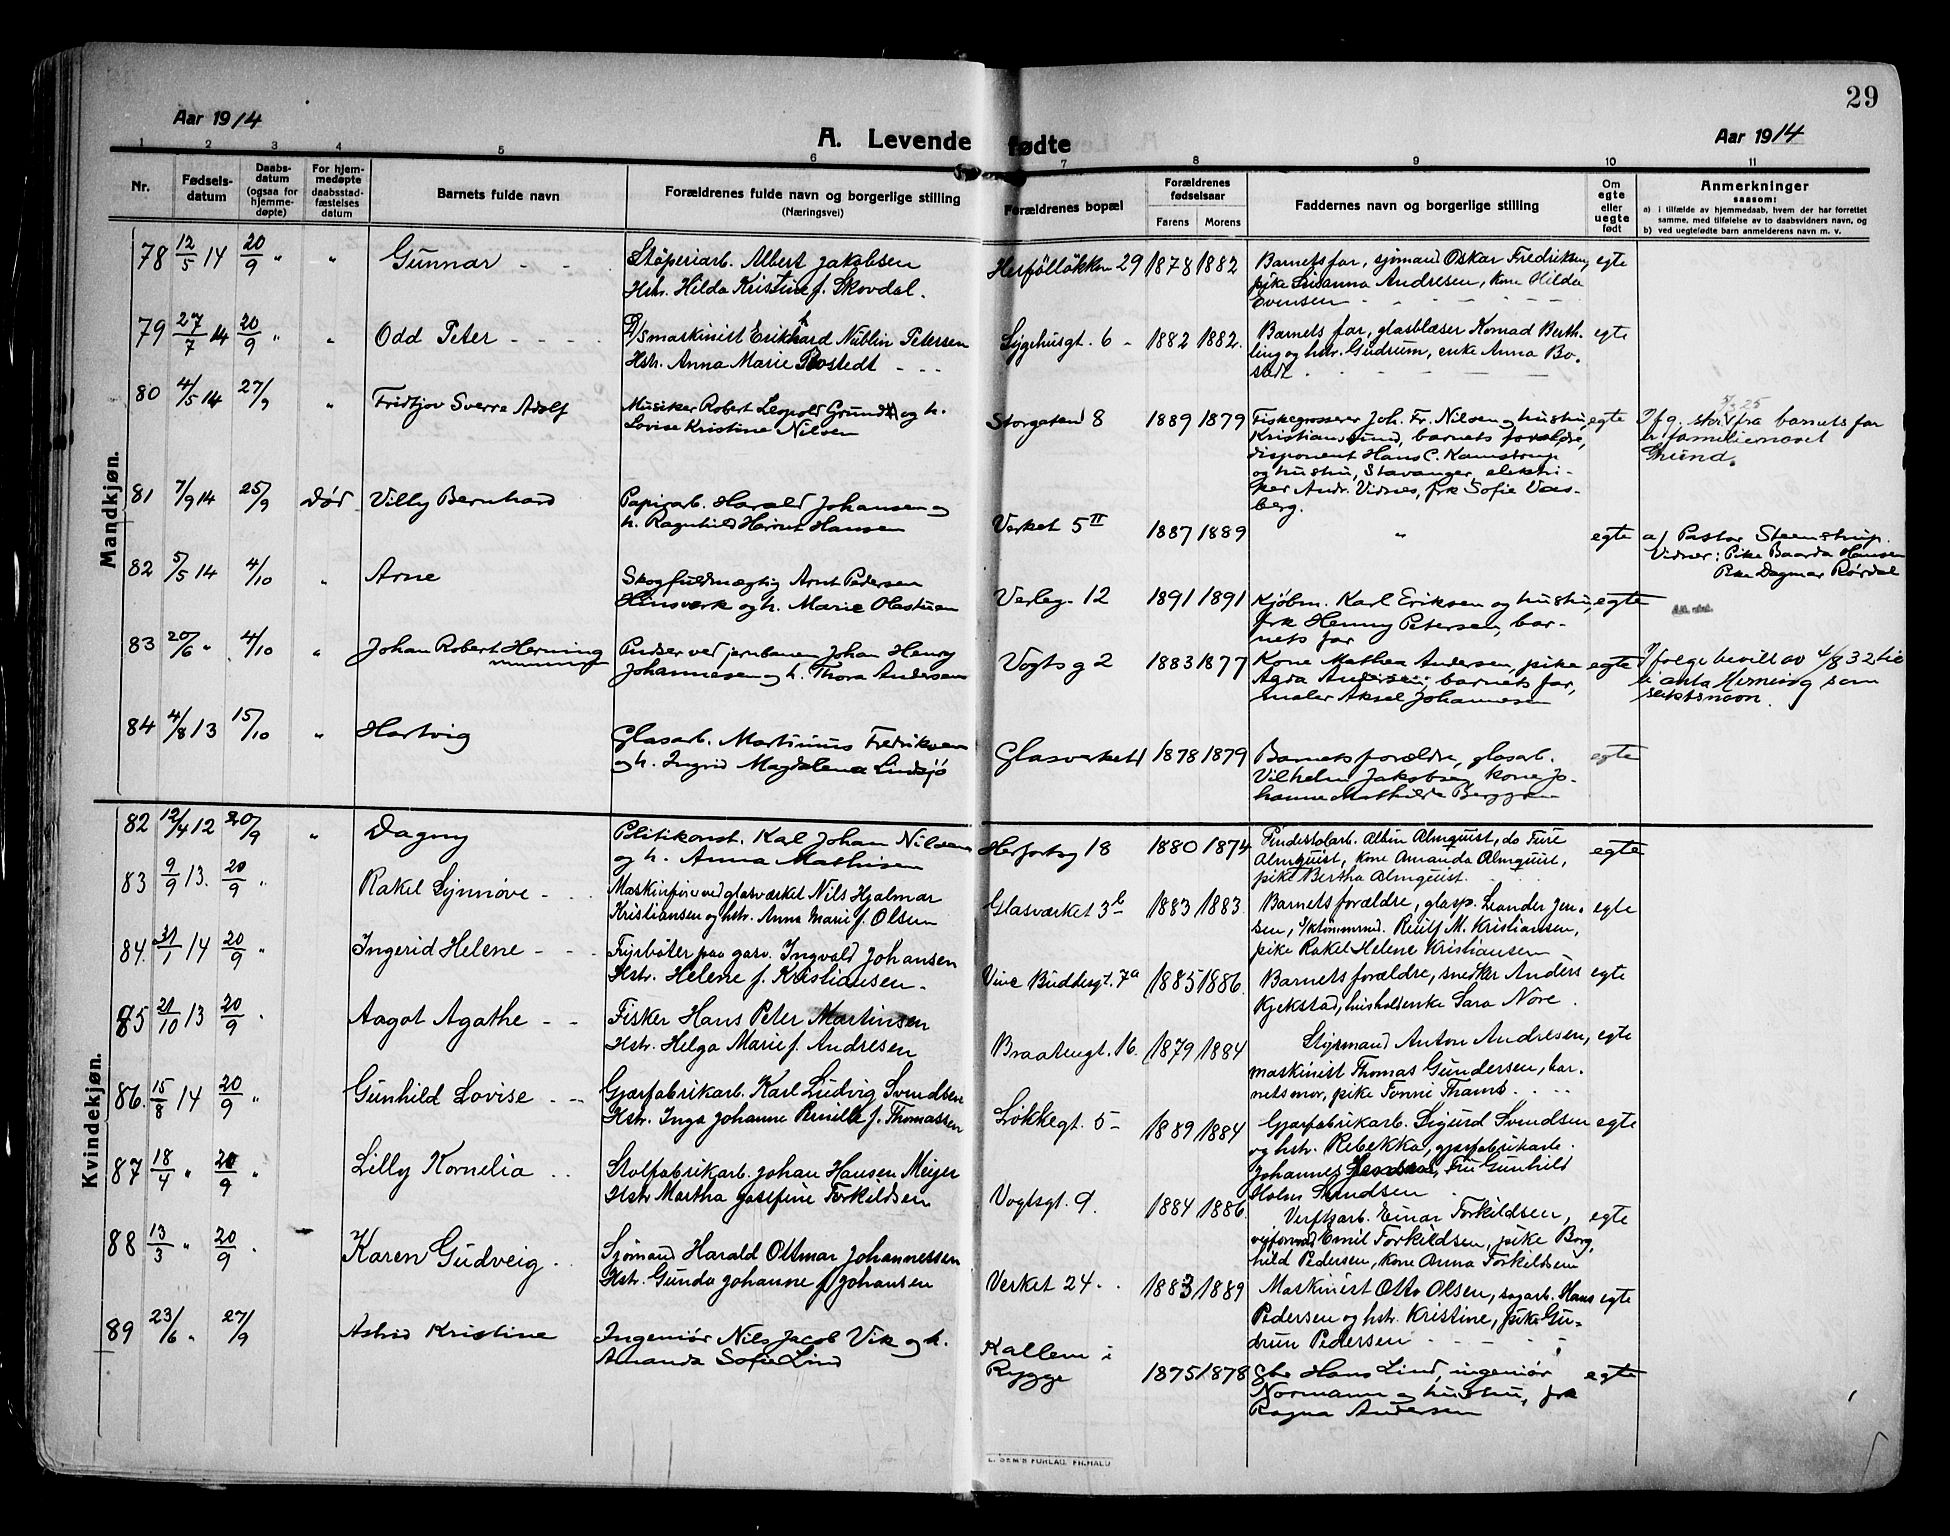 29
Aar 1914
A. Levende fødte
Aar 1914
1 2 3 4 5 6 7 8 9 10 11
Nr.
Fødsels-
datum
Daabs-
datum
(ogsaa for
hjemme-
døpte)
For hjem-
medøpte
daabsstad-
fæstelses
datum
Barnets fulde navn
Forældrenes fulde navn og borgerlige stilling
(Næringsvei)
Forældrenes bopæl
Forældrenes
fødselsaar
Farens Morens
Faddernes navn og borgerlige stilling
Om
egte
eller
uegte
født
Anmerkninger
saasom:
a) i tilfælde av hjemmedaab, hvem der har forrettet
samme, med tilføielse av to daabsvidners navn, og
b) ved uegtefødte barn anmelderens navn m. v.
Mandkjøn.
78 12/5 14 20/9 " " Gunnar - - -
Støperiarb. Albert Jakobsen
Hstr. Hilda Kristine f. Skovdal.
Herfølløkken 29 1878 1882
Barnets far, sjømand Oskar Fredriksen,
pike Susanna Andresen, kone Hilda
Evensen
egte
79 27/7 14 20/9 " " Odd Peter - - - -
D/Smaskinist Erikhard Nüblin Petersen
Hstr. Anna Marie Bostedt - - -
Sygehusgt. 6 - 1882 1882.
Barnets far, glasblæser Konrad Berth-
ling og hstr. Gudrum, enke Anna Bo-
stedt.
egte
80 4/5 14 27/9 " Fridtjov Sverre Adolf
Musiker Robert Leopold Grundt og h.
Lovise Kristine Nilsen
Storgaten 8 1889 1879
Fiskegrosserer Joh. Fr. Nilsen og hustru,
Kristiansund, barnets forældre,
disponent Hans C. Kamstrup
og hustru, Stavanger, elektri-
ker Andr. Vidnes, frk Sofie Vas-
berg.
egte
Ifg. skr. fra barnets far
er familienavnet
Grund.
81 7/9 14 25/9 Død Villy Bernhard
Papirarb. Harald Johansen og
h. Ragnhild Harriet Hansen
Verket 5 II 1887 1889 "
egte
a/ Pastor Steenstrup.
Vidner: Pike Baarda Hansen
Pike Dagmar Rørdal
82 5/5 14 4/10 " Arne
Skogfuldmægtig Arnt Pedersen
Hinsverk og h. Marie Olastuen
Verleg. 12 1891 1891
Kjøbm. Karl Eriksen og hustru,
frk Henny Petersen, bar-
nets far
egte
83 20/6 " 4/10 " Johan Robert Herning
Pudser ved jernbanen Johan Henry
Johannesen og h. Thora Andersen
Vogtsg 2 1883 1877
Kone Mathea Andersen, pike
Agda Andersen, barnets far,
maler Aksel Johannesen
egte
Ifølge bevill av 4/8 32 til
å anta Herning som
slektsnavn.
84 4/8 13 15/10 " Hartvig
Glasarb. Martinius Fredriksen
og h. Ingrid Magdalena Lindsjö
Glasverket 1878 1879
Barnets forældre, glasarb.
Vilhelm Jakobsen, kone Jo-
hanne Mathilde Berggren
egte
Kvindekjøn.
82 12/4 12 20/9 " Dagny
Politikonst. Karl Johan Nilsen
og h. Anna Mathisen
Herfortsg 18 1880 1874
Pindestolarb. Albin Almquist, do Ture
Almquist, kone Amanda Almquist,
pike Bertha Almquist.
egte
83 9/9 13. 20/9 " Rakel Synnøve - - -
Maskinfører ved glasværket Nils Hjalmar
Kristiansen og hstr. Anna Marie f. Olsen
Glasværket 3 b 1883 1883.
Barnets forældre, glasp. Leander Jen-
sen, s/ktømmrmd. Reulf M. Kristiansen,
pike Rakel Helene Kristiansen
egte
84. 31/1 14 20/9 " Ingerid Helene - - -
Fyrbøter paa gasv. Ingvald Johansen
Hstr. Helene f. Kristiansen.
Vive Buddesgt. 7a 1885 1886.
Barnets forældre, snedker Anders
Kjekstad, husholderske Sara Nore.
egte
85 21/10 13 20/9 . Aagot Agathe - - -
Fisker Hans Peter Martinsen
Hstr. Helga Marie f. Andresen
Braatengt. 16. 1879 1884
Styrmand Anton Andresen,
maskinist Thomas Gundersen, bar-
nets mor, pike Fonni Thams.
egte
86. 15/8 14 20/9 " Gunhild Lovise - - -
Gjærfabrikarb. Karl Ludvig Svendsen
Hstr. Inga Johanne Pernille f. Thomassen
Løkkegt. 5 - 1889 1884
Gjærfabrikarb. Sigurd Svendsen
og hstr. Rebekka, gjærfabrikarb.
Johannes Hansen, Fru Gunhild
Holm Svendsen
egte
87 18/4 " 20/9 " Lilly Kornelia . .
Stolfabrikarb. Johan Hansen Meyer
Hstr Martha Josefine Torkildsen
Vogtsgt. 9. 1884 1886
Verftsarb. Einar Torkildsen,
veiformd Emil Torkildsen, pike Borg-
hild Pedersen, kone Anna Torkildsen
egte
88 13/3 " 20/9 . Karen Gudveig . .
Sjømand Harald Ottmar Johannessen
Hstr. Gunda Johanne f. Johansen
Verket 24 - . 1883 1889
Maskinist Otto Olsen, sagarb. Hans
Pedersen og hstr. Kristine, pike Gu-
drun Pedersen
egte
89 23/6 " 27/9 Astrid Kristine
Ingeniør Nils Jacob Vik og h.
Amanda Sofie Lind
Kallem i
Rygge 1875 1878
Gbr Hans Lind, ingeniør
Normann og hustru, frk
Ragna Andersen
egte
E. SEM'S FORLAG, FR.HALD